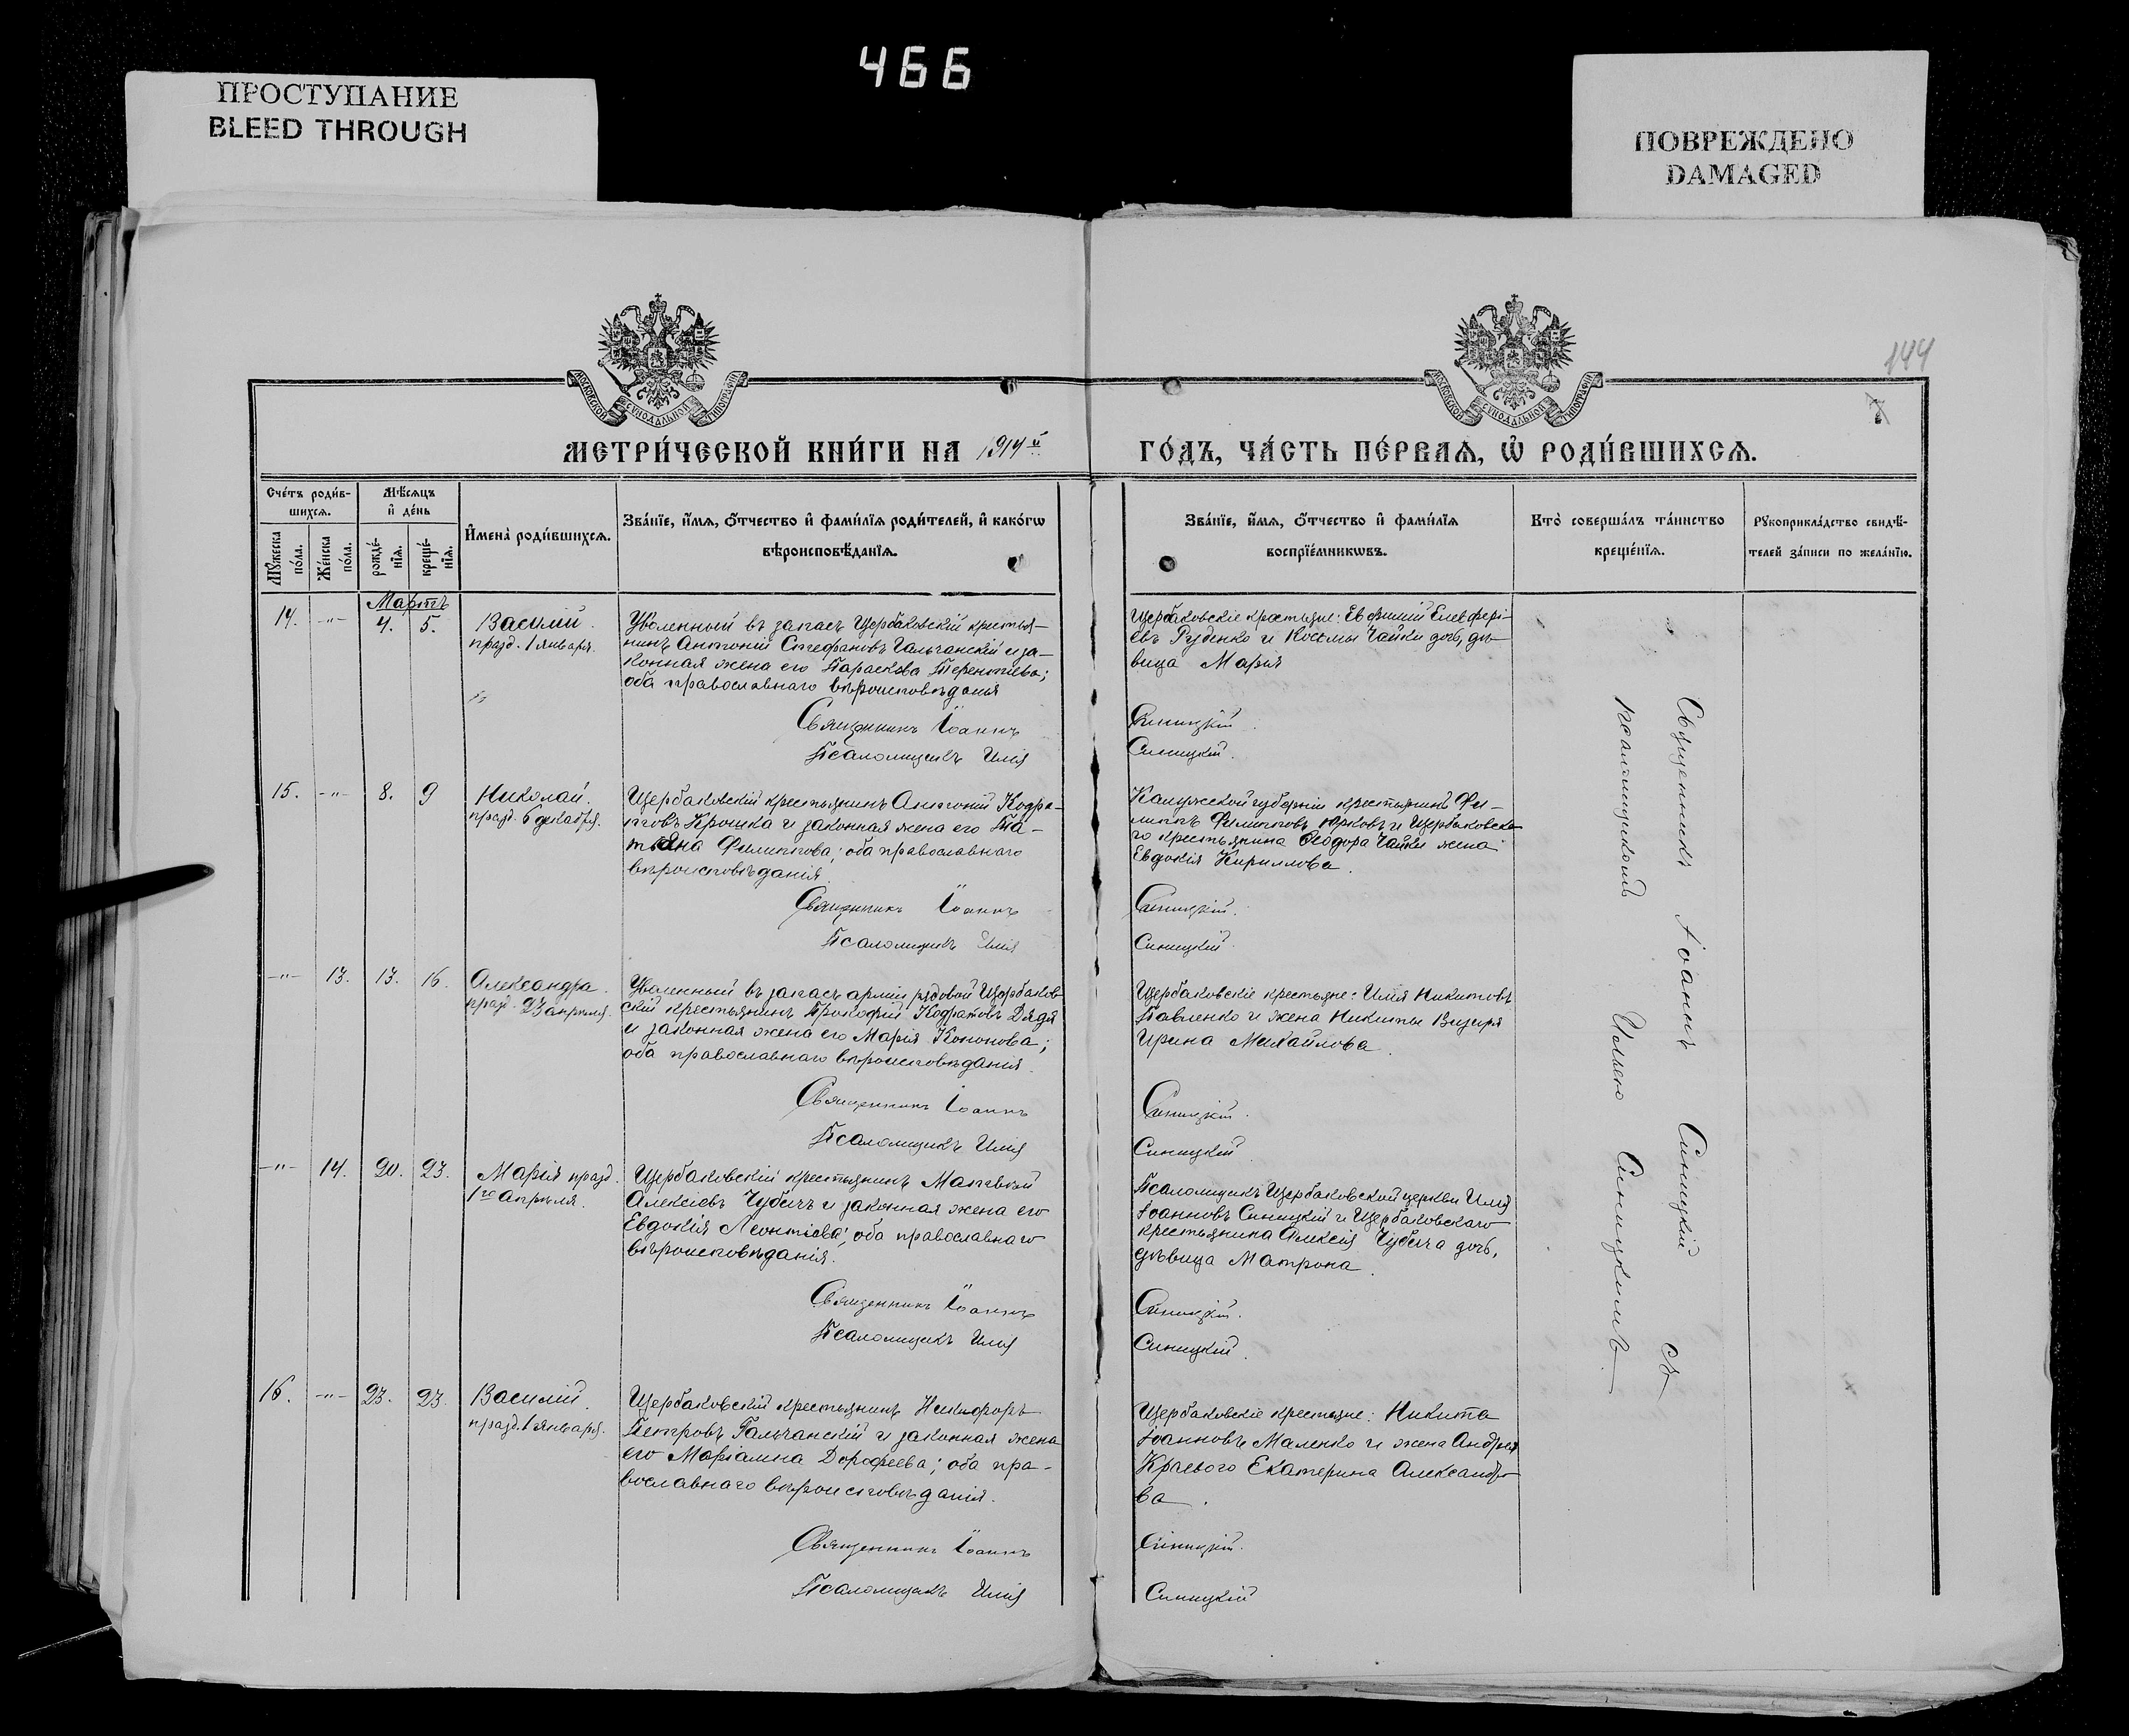 466
ПРОСТУПАНИЕ
BLEED THROUGH
ПОВРЕЖДЕНО
DAMAGED
144
7
МОСКОВСКОЙ СѴНОДАЛЬНОЙ ТИПОГРАФІИ
МОСКОВСКОЙ СѴНОДАЛЬНОЙ ТИПОГРАФІИ
МЕТРИ́ЧЕСКОЙ КНИ́ГИ НА 1914й
ГО́ДЪ, ЧА́СТЬ ПЕ́РВАѦ, Ѡ҆ РОДИ́ВШИХСѦ.
Сче́тъ роди́в-
шихсѧ.
Мѣ́сѧцъ
и҆ де́нь
Мꙋ́жеска
по́ла.
Же́нска
по́ла.
рожде́-
нїѧ.
креще́-
нїѧ.
И҆мена̀ роди́вшихсѧ.
Зва́нїе, и҆́мѧ, ѻ҆́тчество и҆ фами́лїѧ роди́телей, и҆ како́гѡ
вѣроисповѣ́данїѧ.
Зва́нїе, и҆́мѧ, ѻ҆́тчество и҆ фами́лїѧ
воспрїе́мникѡвъ.
Кто̀ соверша́лъ та́инство
креще́нїѧ.
Рꙋкоприкла́дство свидѣ́-
телей за́писи по жела́нїю.
Мартъ
14. -"- 4. 5.
Василій.
празд. 1 января.
Уволенный въ запасъ Щербаковскій крестья-
нинъ Антоній Стефановъ Гальчанскій и за-
конная жена его Параскева Терентіева;
оба православнаго вѣроисповѣданія
Священникъ Іоаннъ
Псаломщикъ Илія
Щербаковскіе крестьяне: Евфимій Елевфері-
евъ Руденко и Космы Чайки дочь, дѣ-
вица Марія
Синицкій.
Синицкій.
15. -"- 8. 9
Николай.
празд. 6 декабря.
Щербаковскій крестьянинъ Антоній Кодра-
товъ Крошка и законная жена его Та-
тіана Филиппова; оба православнаго
вѣроисповѣданія.
Священникъ Іоаннъ
Псаломщикъ Илія
Калужской губерніи крестьянинъ Фи-
липпъ Филипповъ Юрковъ и Щербаковска-
го крестьянина Ѳеодора Чайки жена
Евдокія Кириллова.
Синицкій.
Синицкій.
-"- 13. 13. 16.
Александра.
празд. 23 апрѣля.
Уволенный въ запасъ арміи рядовой Щербаков-
скій крестьянинъ Прокофій Кодратовъ Дядя
и законная жена его Марія Кононова;
оба православнаго вѣроисповѣданія.
Священникъ Іоаннъ
Псаломщикъ Илія
Щербаковскіе крестьяне: Илія Никитовъ
Павленко и жена Никиты Визиря
Ирина Михайлова.
Синицкій.
Синицкій.
-"- 14. 20. 23.
Марія празд.
1го Апрѣля.
Щербаковскій крестьянинъ Матвѣй
Алексіевъ Чубичъ и законная жена его
Евдокія Леонтіева; оба православнаго
вѣроисповѣданія.
Священникъ Іоаннъ
Псаломщикъ Илія
Псаломщикъ Щербаковской церкви Илія
Іоанновъ Синицкій и Щербаковскаго
крестьянина Алексія Чубича дочь,
дѣвица Матрона.
Синицкій.
Синицкій.
16. -"- 23. 23.
Василій.
празд. 1 января.
Щербаковскій крестьянинъ Никифоръ
Петровъ Гальчанскій и законная жена
его Маріамна Дорофеева; оба пра-
вославнаго вѣроисповѣданія.
Священникъ Іоаннъ
Псаломщикъ Илія
Щербаковскіе крестьяне: Никита
Іоанновъ Маленко и жена Андрея
Краевого Екатерина Александро-
ва.
Синицкій.
Синицкій
Священникъ Іоаннъ Синицкій съ
псаломщикомъ Иліею Синицкимъ.